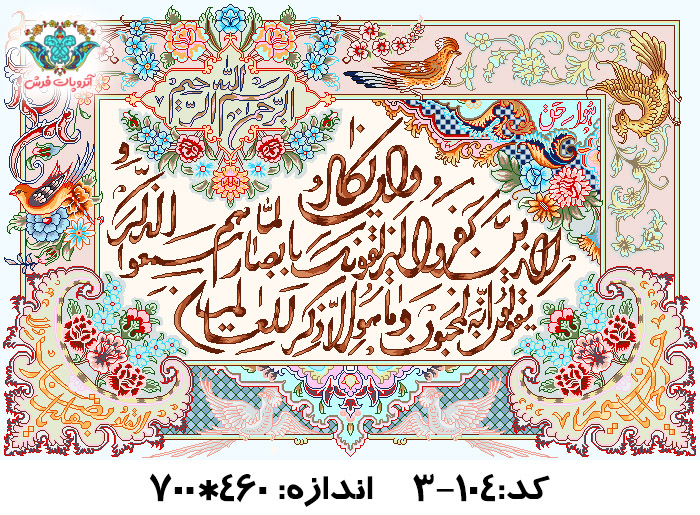 آتروپات فرش
بسم الله الرحمن الرحيم
هوالرحمن
وان یکاد
الذین کفروا لیزلقونک بابصارهم لما سمعوا الذکر و
یقولون انه لمجنون و ما هو الا ذکر للعالمین
کد:۱۰۴-۳ اندازه: ۴۶۰*۷۰۰